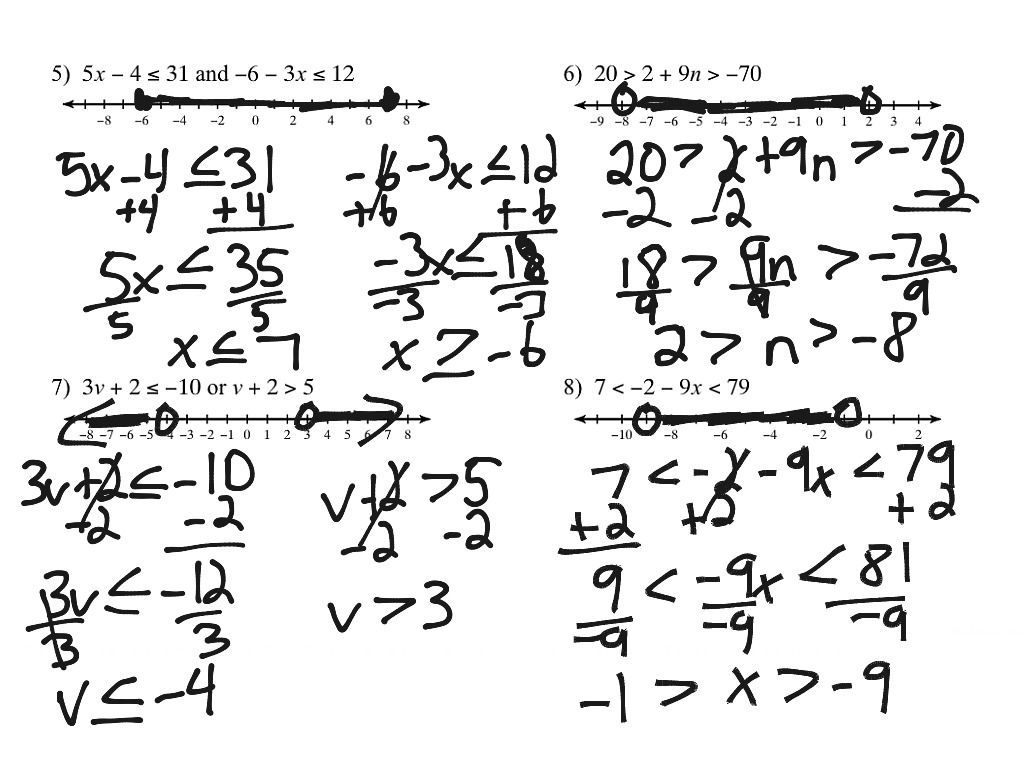 5) 5x − 4 ≤ 31 and −6 − 3x ≤ 12
−8 −6 −4 −2 0 2 4 6 8
5x − 4 ≤ 31
+4 +4
5x ≤ 35
5 5
x ≤ 7
−6 − 3x ≤ 12
+6 + 6
−3x ≤ 18
−3 −3
x ≥ −6
6) 20 > 2 + 9n > −70
−9 −8 −7 −6 −5 −4 −3 −2 −1 0 1 2 3 4
20 > 2 + 9n > −70
−2 −2 −2
18 > 9n > −72
9 9 9
2 > n > −8
7) 3v + 2 ≤ −10 or v + 2 > 5
−8 −7 −6 −5 −4 −3 −2 −1 0 1 2 3 4 5 6 7 8
3v + 2 ≤ −10
−2 −2
3v ≤ −12
3 3
v ≤ −4
v + 2 > 5
−2 −2
v > 3
8) 7 < −2 − 9x < 79
−10 −8 −6 −4 −2 0 2
7 < −2 − 9x < 79
+2 +2 +2
9 < −9x < 81
−9 −9 −9
−1 > x > −9